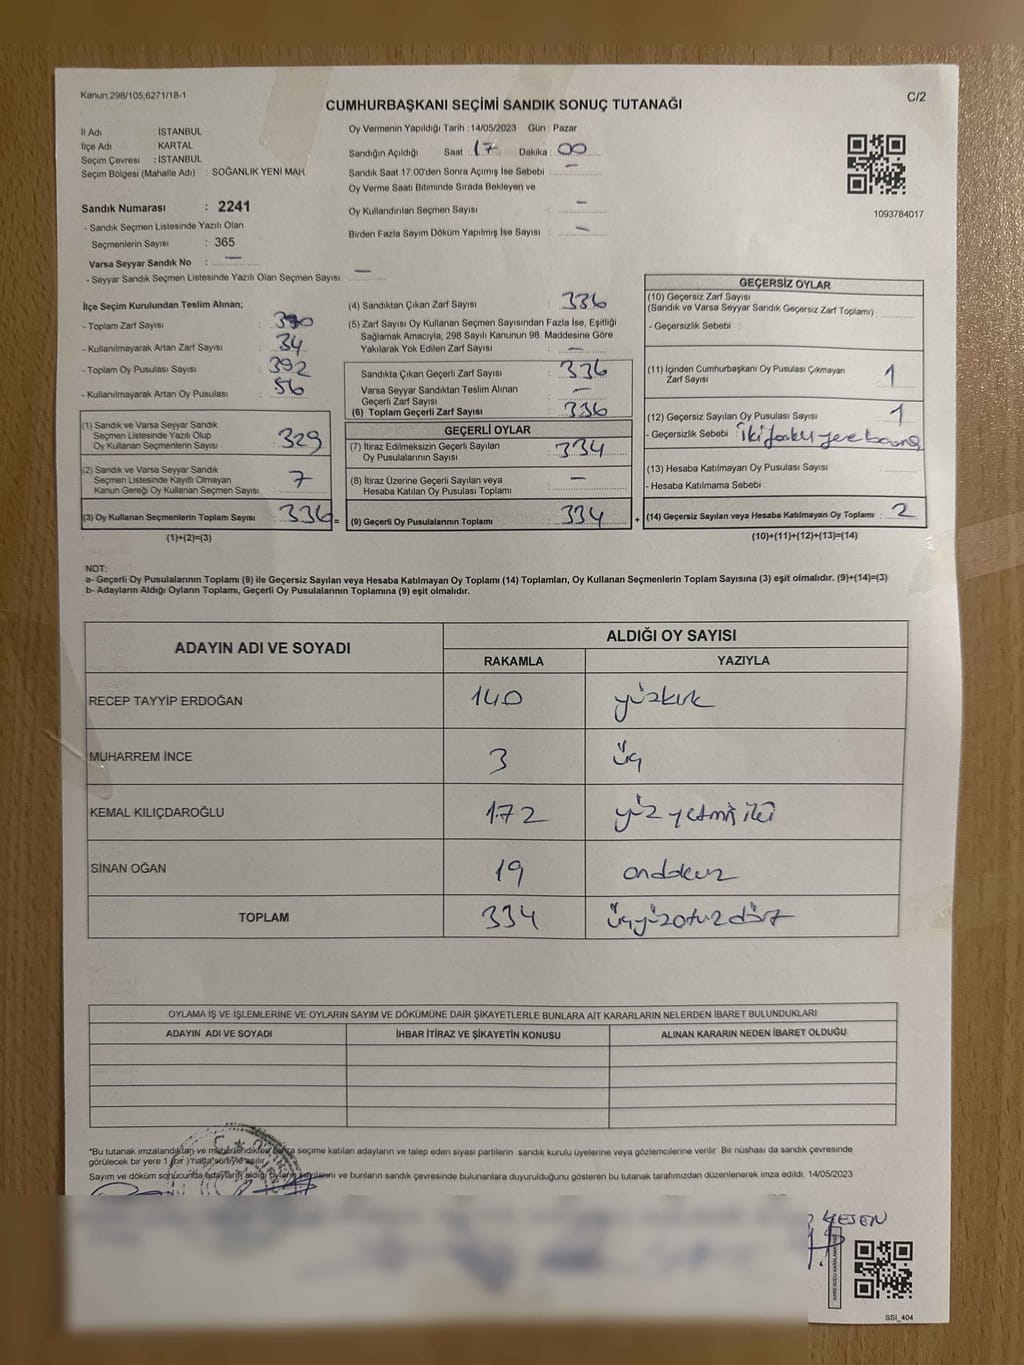 Kanun:298/105;6271/18-1
C/2
CUMHURBAŞKANI SEÇİMİ SANDIK SONUÇ TUTANAĞI
İl Adı : İSTANBUL
İlçe Adı : KARTAL
Seçim Çevresi : İSTANBUL
Seçim Bölgesi (Mahalle Adı) : SOĞANLIK YENİ MAH.
Sandık Numarası : 2241
- Sandık Seçmen Listesinde Yazılı Olan
Seçmenlerin Sayısı : 365
Varsa Seyyar Sandık No : —
- Seyyar Sandık Seçmen Listesinde Yazılı Olan Seçmen Sayısı: —
Oy Vermenin Yapıldığı Tarih : 14/05/2023 Gün : Pazar
Sandığın Açıldığı Saat : 17 Dakika : 00
Sandık Saat 17.00'den Sonra Açımış İse Sebebi : —
Oy Verme Saati Bitiminde Sırada Bekleyen ve
Oy Kullandırılan Seçmen Sayısı : —
Birden Fazla Sayım Döküm Yapılmış İse Sayısı : —
1093784017
İlçe Seçim Kurulundan Teslim Alınan;
- Toplam Zarf Sayısı :
- Kullanılmayarak Artan Zarf Sayısı : 34
- Toplam Oy Pusulası Sayısı : 392
- Kullanılmayarak Artan Oy Pusulası : 56
(1) Sandık ve Varsa Seyyar Sandık
Seçmen Listesinde Yazılı Olup
Oy Kullanan Seçmenlerin Sayısı : 329
(2) Sandık ve Varsa Seyyar Sandık
Seçmen Listesinde Kayıtlı Olmayan
Kanun Gereği Oy Kullanan Seçmen Sayısı : 7
(3) Oy Kullanan Seçmenlerin Toplam Sayısı : 336 =
(1)+(2)=(3)
(4) Sandıktan Çıkan Zarf Sayısı : 336
(5) Zarf Sayısı Oy Kullanan Seçmen Sayısından Fazla İse, Eşitliği
Sağlamak Amacıyla; 298 Sayılı Kanunun 98. Maddesine Göre
Yakılarak Yok Edilen Zarf Sayısı : —
Sandıkta Çıkan Geçerli Zarf Sayısı : 336
Varsa Seyyar Sandıktan Teslim Alınan
Geçerli Zarf Sayısı : —
(6) Toplam Geçerli Zarf Sayısı : 336
GEÇERLİ OYLAR
(7) İtiraz Edilmeksizin Geçerli Sayılan
Oy Pusulalarının Sayısı : 334
(8) İtiraz Üzerine Geçerli Sayılan veya
Hesaba Katılan Oy Pusulası Toplamı : —
(9) Geçerli Oy Pusulalarının Toplamı : 334 +
GEÇERSİZ OYLAR
(10) Geçersiz Zarf Sayısı
(Sandık ve Varsa Seyyar Sandık Geçersiz Zarf Toplamı) :
- Geçersizlik Sebebi :
(11) İçinden Cumhurbaşkanı Oy Pusulası Çıkmayan
Zarf Sayısı : 1
(12) Geçersiz Sayılan Oy Pusulası Sayısı : 1
- Geçersizlik Sebebi : İki farklı yere
(13) Hesaba Katılmayan Oy Pusulası Sayısı :
- Hesaba Katılmama Sebebi :
(14) Geçersiz Sayılan veya Hesaba Katılmayan Oy Toplamı : 2
(10)+(11)+(12)+(13)=(14)
NOT:
a- Geçerli Oy Pusulalarının Toplamı (9) ile Geçersiz Sayılan veya Hesaba Katılmayan Oy Toplamı (14) Toplamları, Oy Kullanan Seçmenlerin Toplam Sayısına (3) eşit olmalıdır. (9)+(14)=(3)
b- Adayların Aldığı Oyların Toplamı, Geçerli Oy Pusulalarının Toplamına (9) eşit olmalıdır.
ADAYIN ADI VE SOYADI
ALDIĞI OY SAYISI
RAKAMLA YAZIYLA
RECEP TAYYİP ERDOĞAN 140 yüzkırk
MUHARREM İNCE 3 üç
KEMAL KILIÇDAROĞLU 172 yüz yetmiş iki
SİNAN OĞAN 19 ondokuz
TOPLAM 334 üçyüzotuzdört
OYLAMA İŞ VE İŞLEMLERİNE VE OYLARIN SAYIM VE DÖKÜMÜNE DAİR ŞİKAYETLERLE BUNLARA AİT KARARLARIN NELERDEN İBARET BULUNDUKLARI
ADAYIN ADI VE SOYADI İHBAR İTİRAZ VE ŞİKAYETİN KONUSU ALINAN KARARIN NEDEN İBARET OLDUĞU
*Bu tutanak imzalandıktan ve mühürlendikten sonra seçime katılan adayların ve talep eden siyasi partilerin sandık kurulu üyelerine veya gözlemcilerine verilir. Bir nüshası da sandık çevresinde
görülecek bir yere 1 (bir) hafta süreyle asılır.
Sayım ve döküm sonucunda adayların aldığı oyların sayılarını ve bunların sandık çevresinde bulunanlara duyurulduğunu gösteren bu tutanak tarafımızdan düzenlenerek imza edildi. 14/05/2023
KESEN
SSI_404